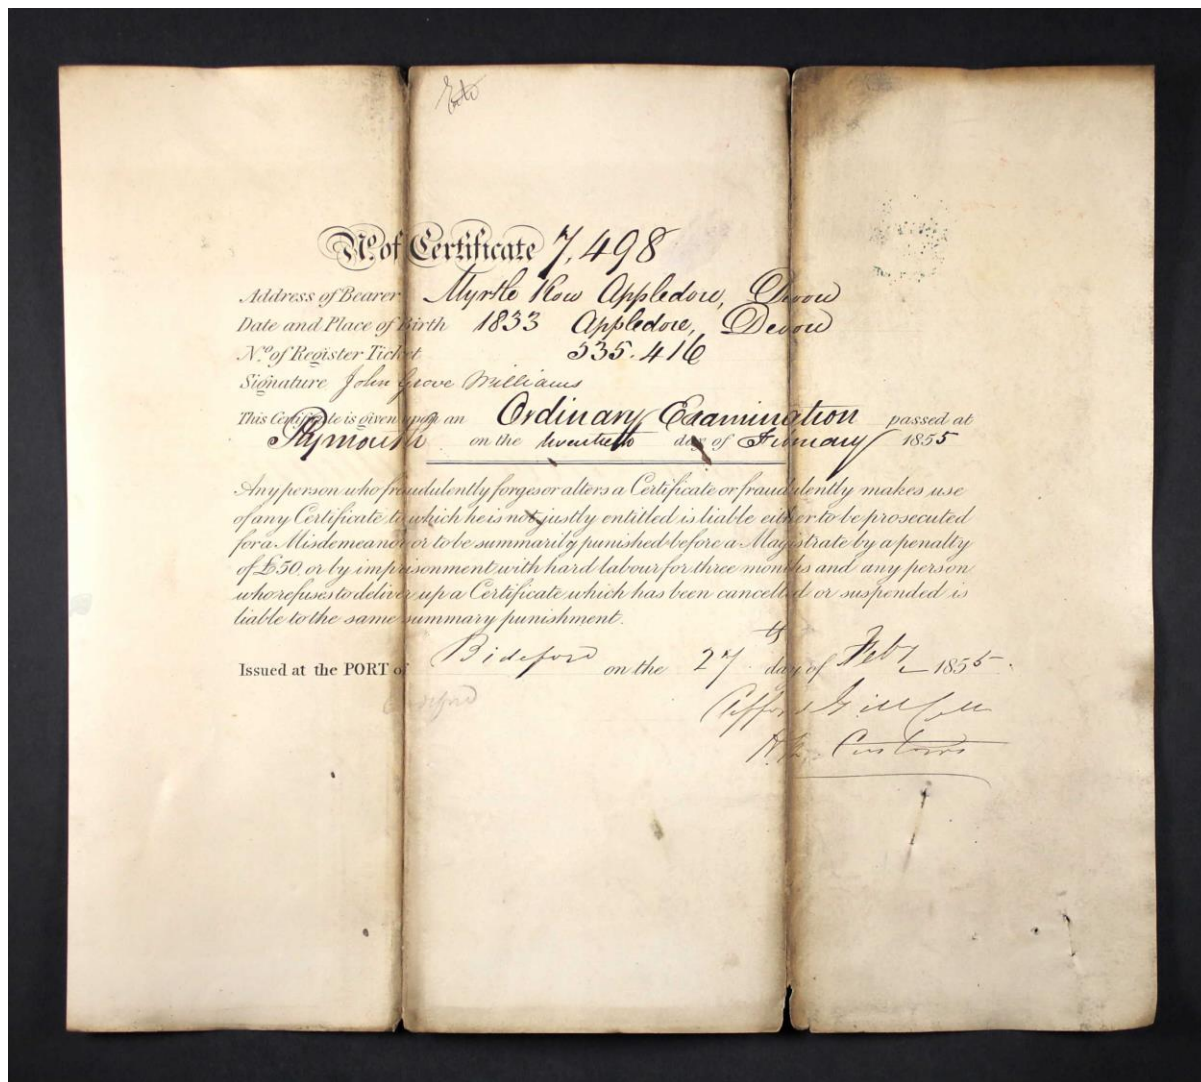 No. of Certificate 7,498
Address of Bearer Myrtle Row Appledore, Devon
Date and Place of Birth 1833 Appledore, Devon
No. of Register Ticket 535.416
Signature John Grove Williams
This Certificate is given upon an Ordinary Examination passed at
Plymouth on the twentieth day of February 1855
Any person who fraudulently forges or alters a Certificate or fraudulently makes use
of any Certificate to which he is not justly entitled is liable either to be prosecuted
for a Misdemeanor or to be summarily punished before a Magistrate by a penalty
of £50, or by imprisonment with hard labour for three months and any person
who refuses to deliver up a Certificate which has been cancelled or suspended is
liable to the same summary punishment.
Issued at the PORT of Bideford on the 27th day of Feby 1855.
Bideford
Customs